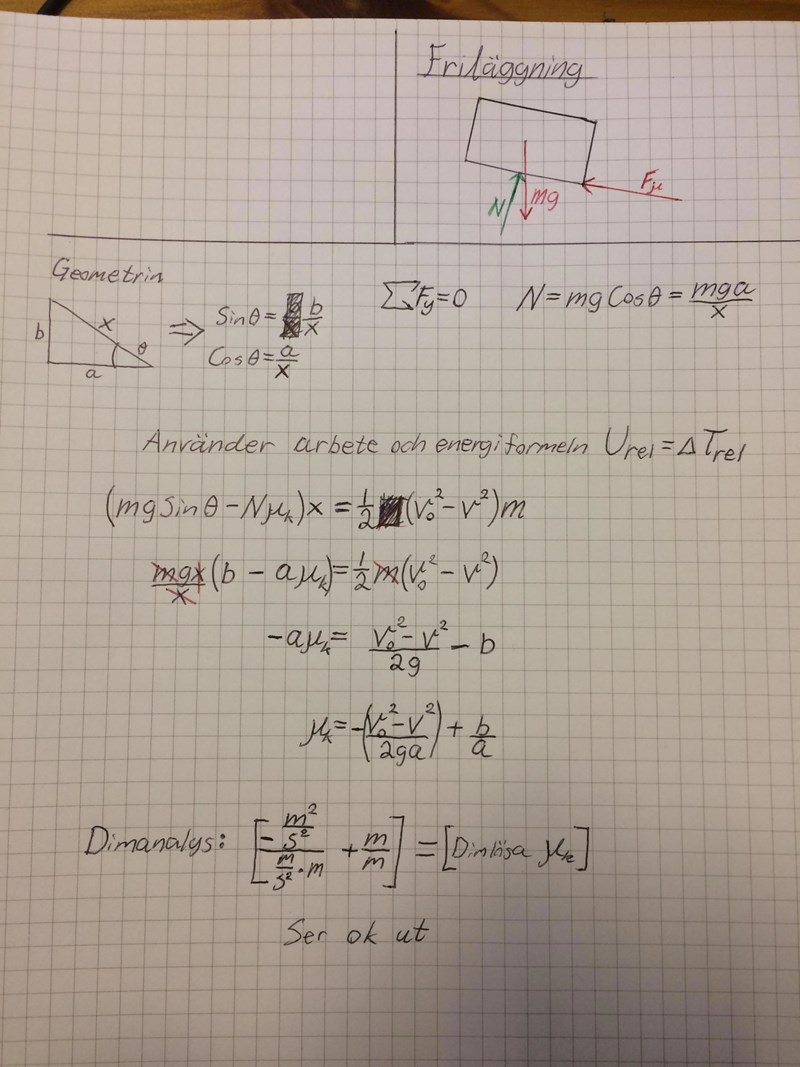 Friläggning
N mg Fμ
Geometrin
b x θ a
⇒ Sinθ = b/x
Cosθ = a/x
ΣFy = 0 N = mg Cosθ = mga/x
Använder arbete och energiformeln Urel = ΔTrel
(mg Sinθ − Nμk)x = 1/2 (v₀² − v²)m
mgx/x (b − aμk) = 1/2 m(v₀² − v²)
−aμk = (v₀² − v²)/2g − b
μk = −((v₀² − v²)/2ga) + b/a
Dimanalys: [−(m²/s²)/(m/s² · m) + m/m] = [Dimlösa μk]
Ser ok ut